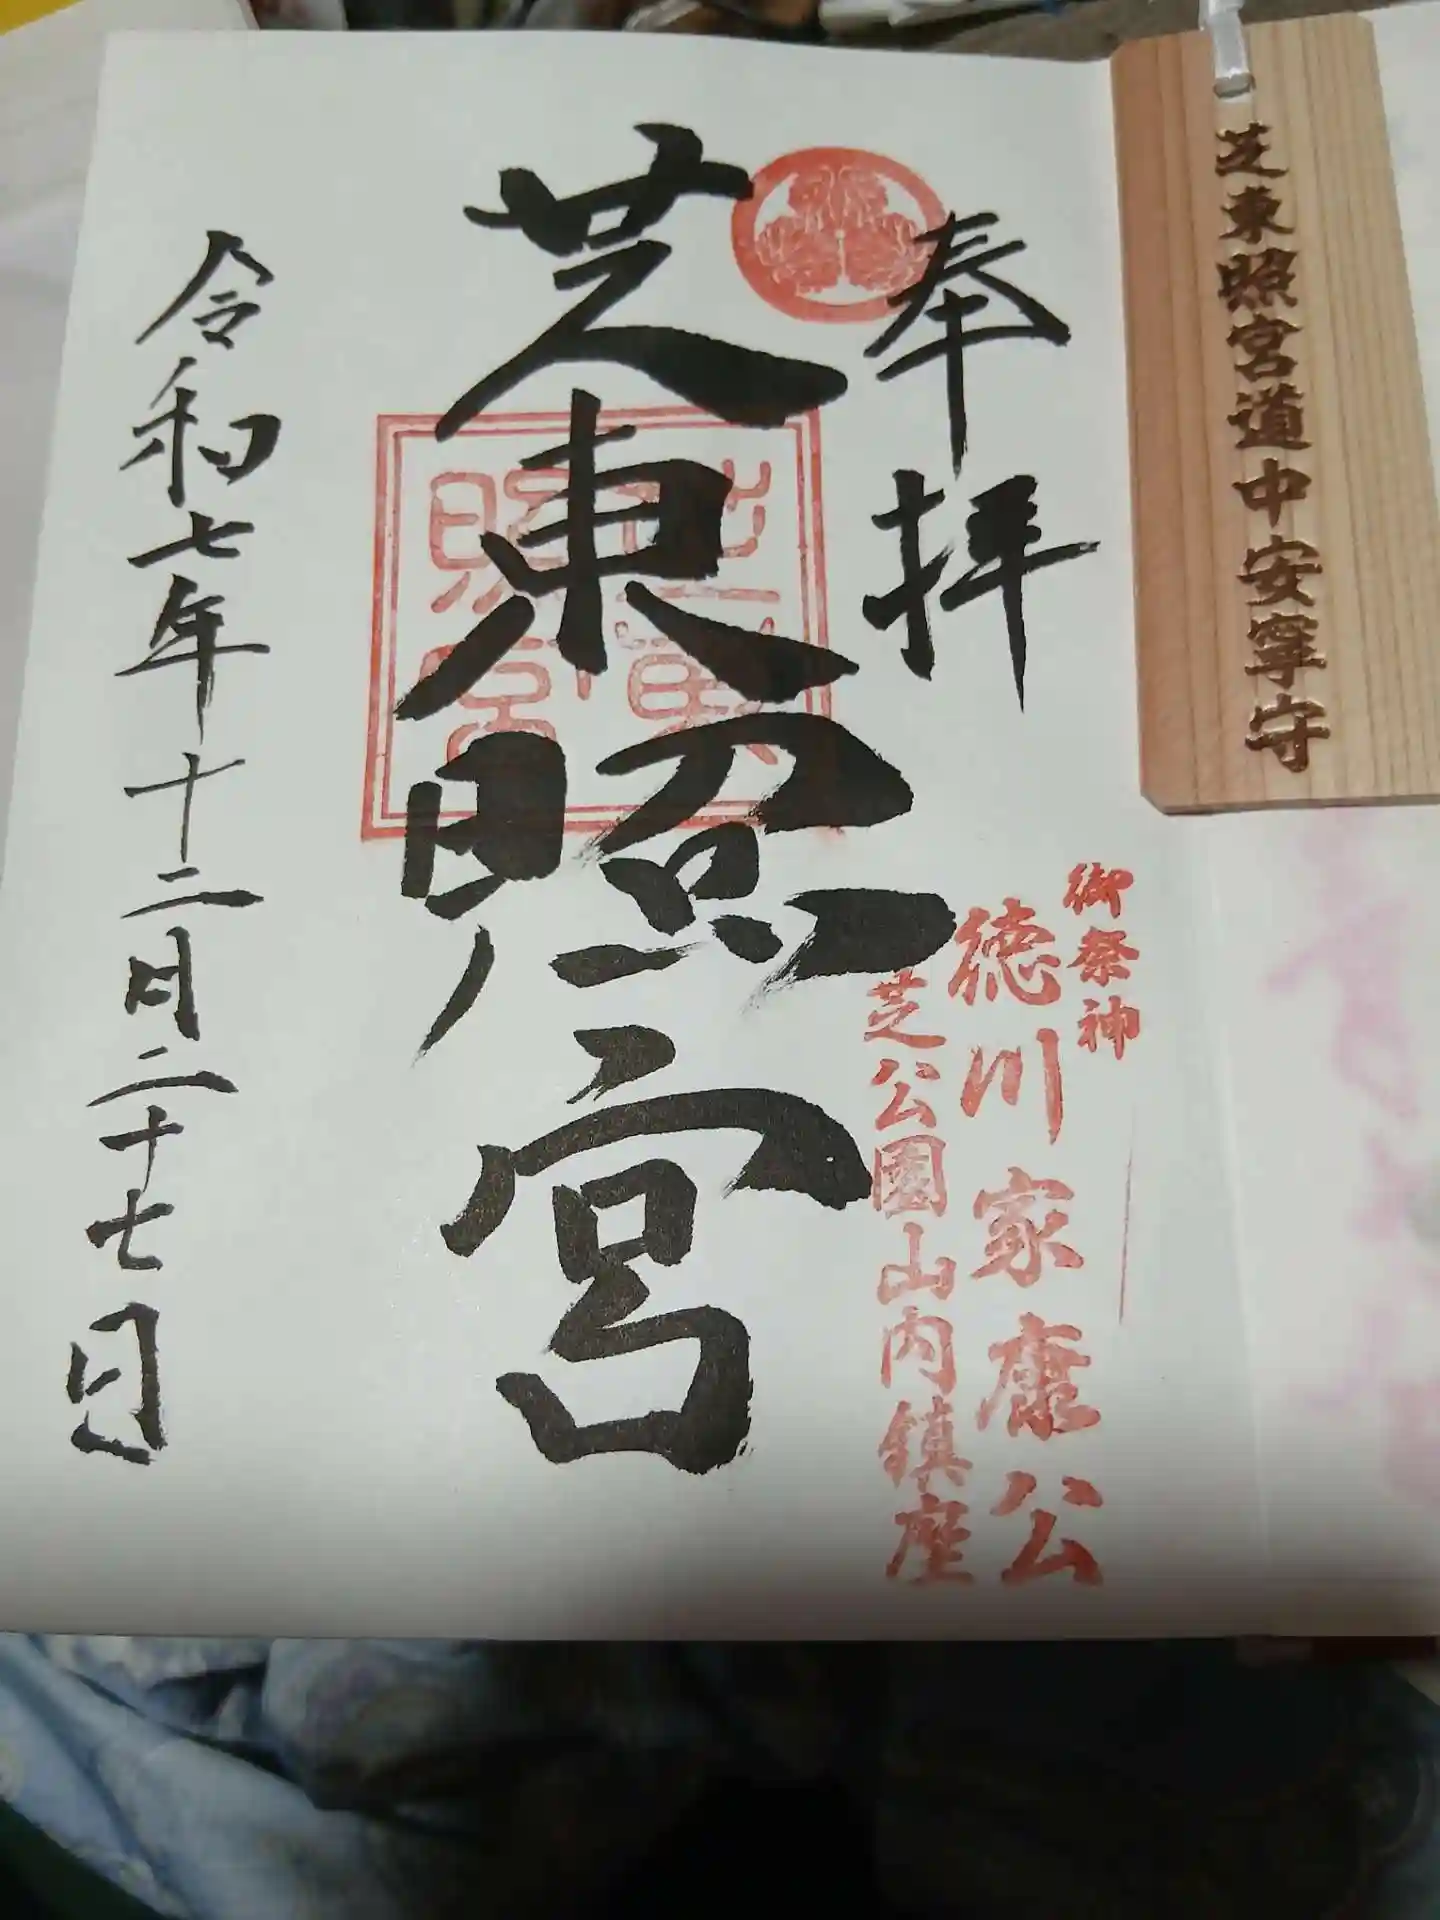 芝東照宮道中安寧守
奉拝
御祭神
徳川家康公
芝公園山内鎮座
芝東照宮
芝東照宮
令和七年十二月二十七日